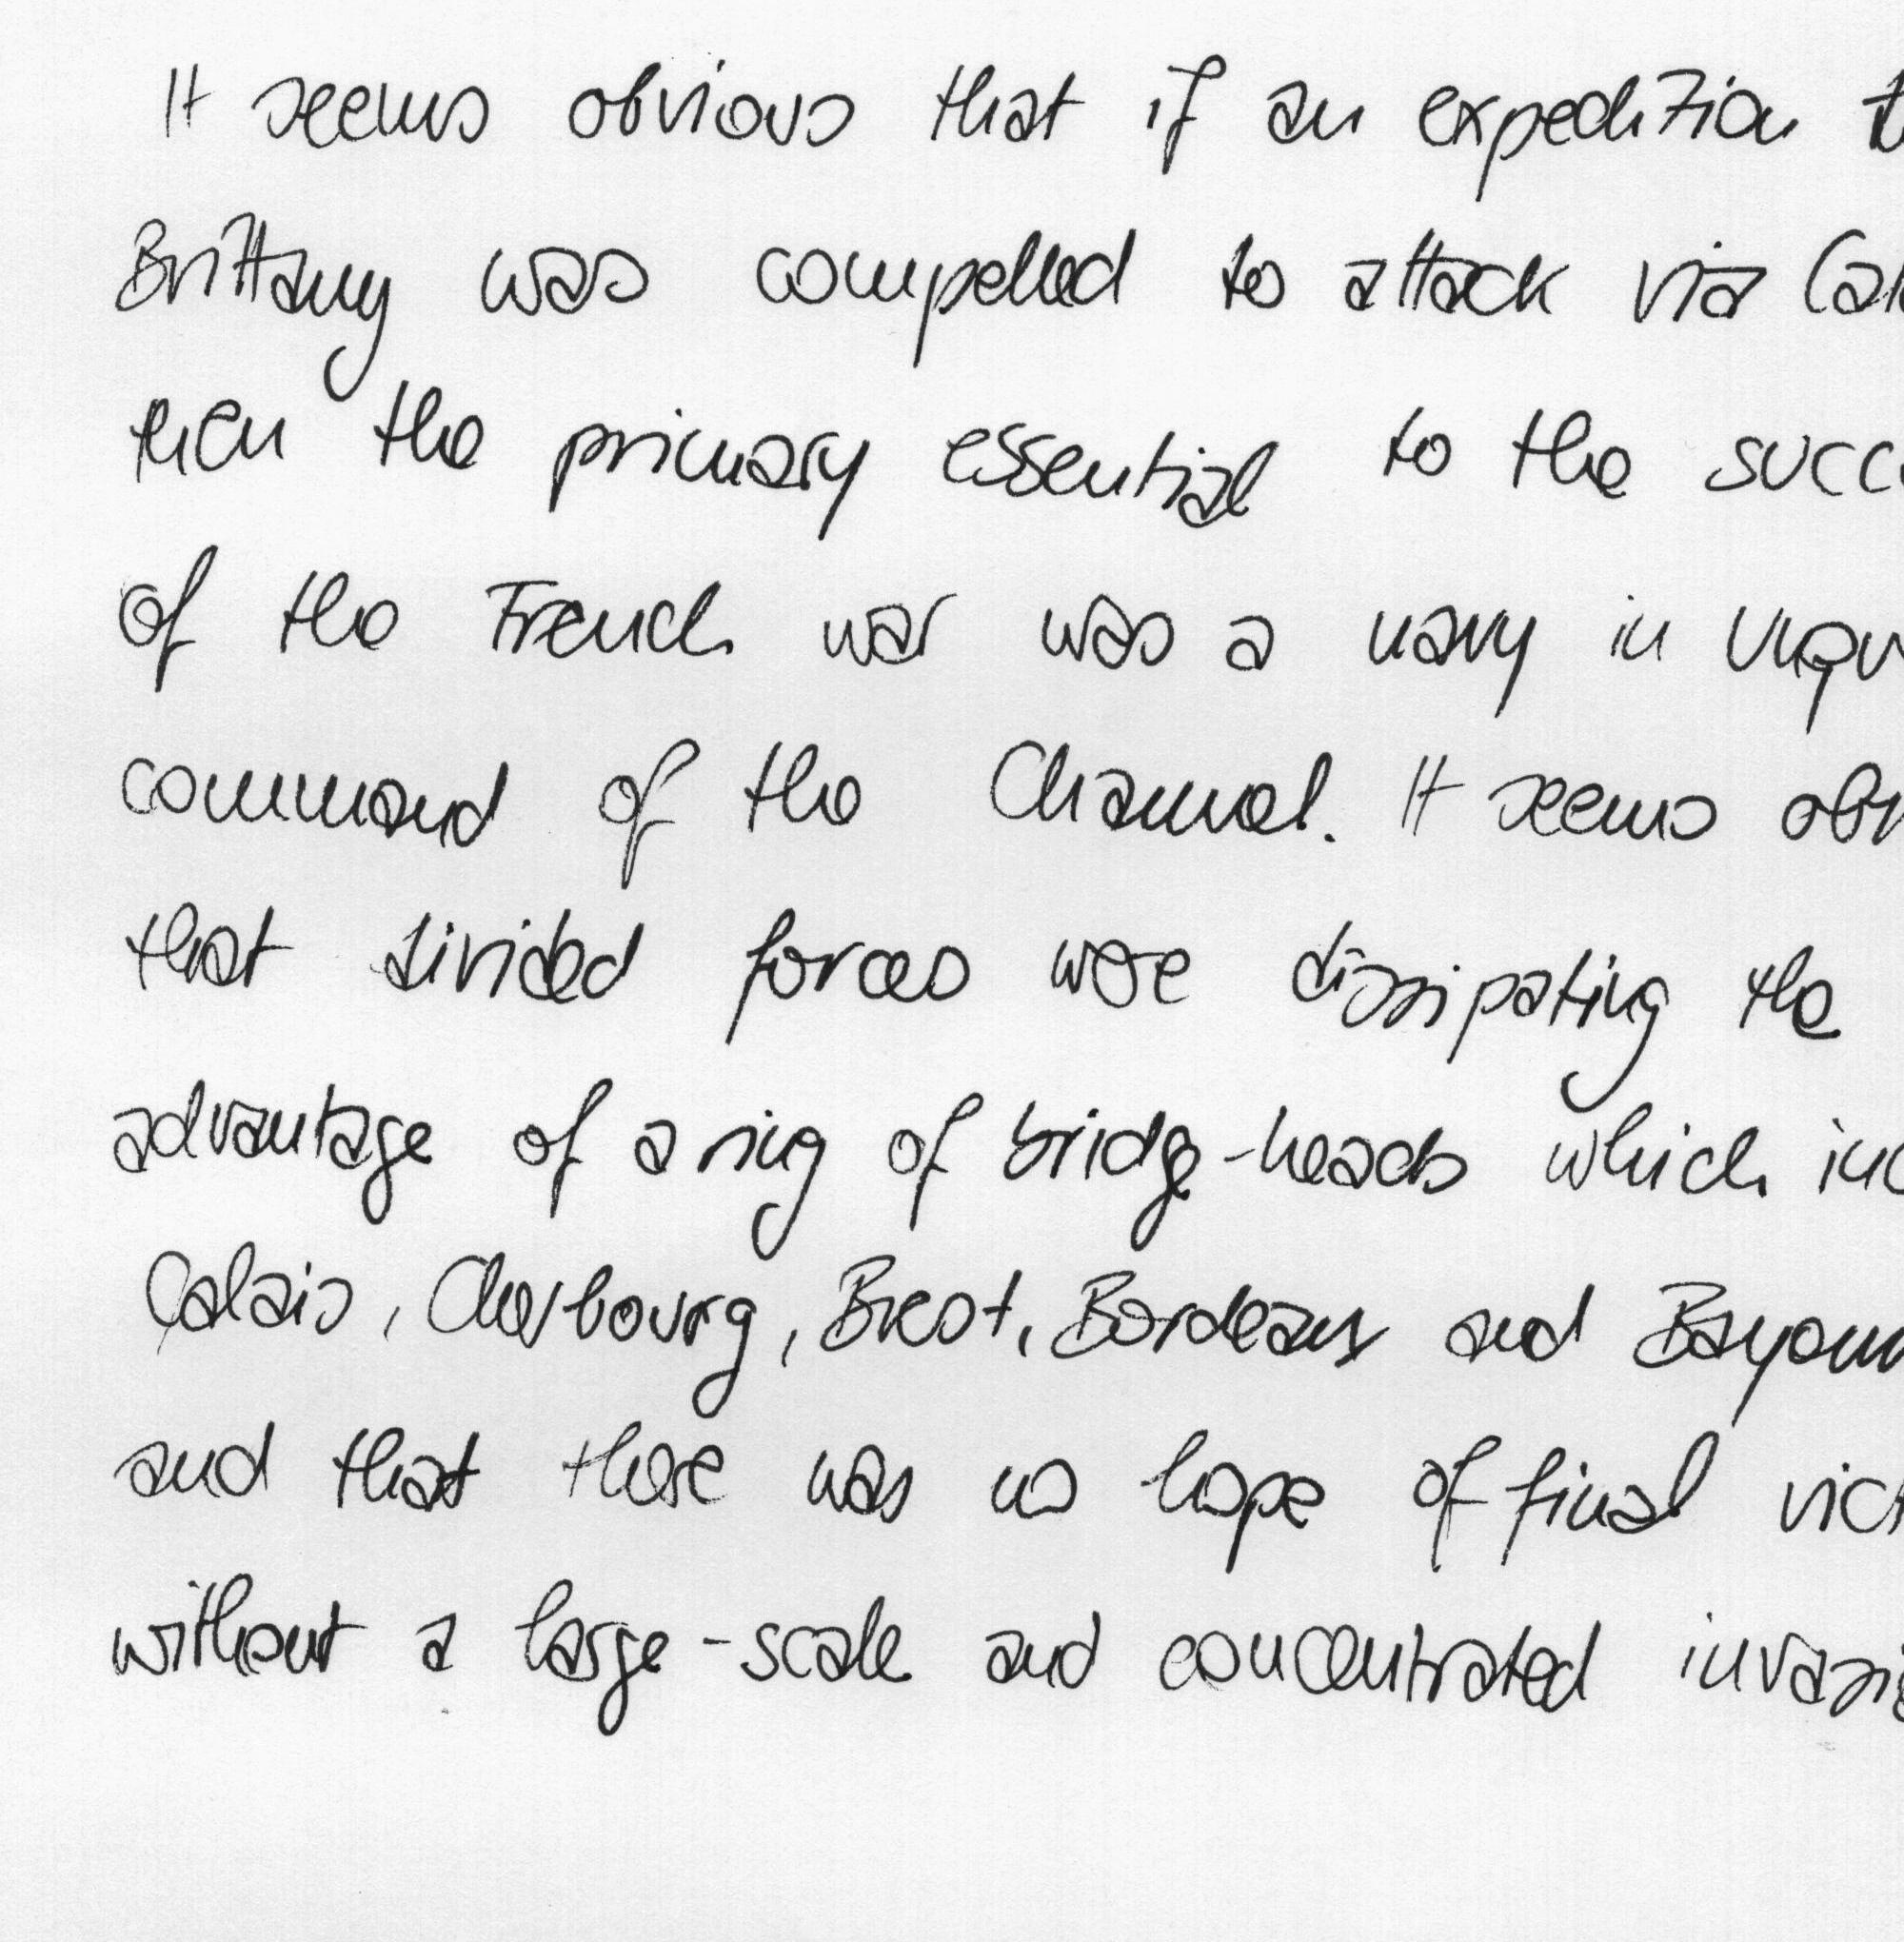 It seems obvious that if an expedition
Brittany was compelled to attack via
then the primary essential to the
of the French war was a navy in
command of the Channel. It seems
that divided forces were dissipating the
advantage of a ring of bridge-heads which
Calais, Cherbourg, Brest, Bordeaux and
and that there was no hope of final
without a large-scale and concentrated